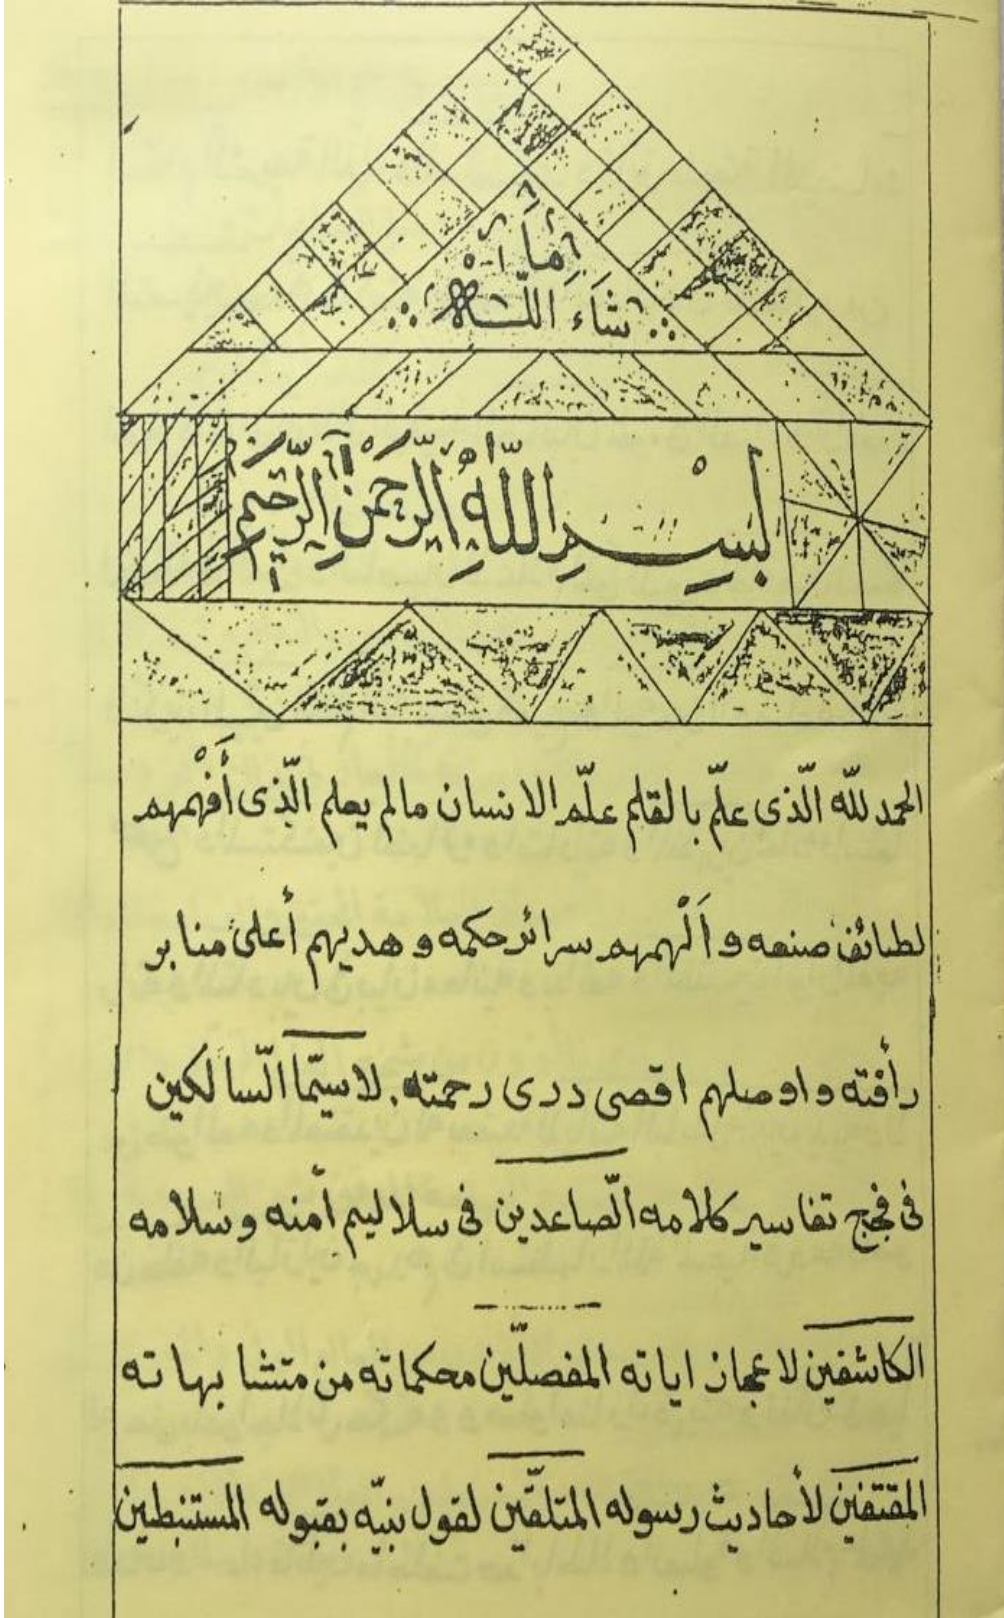 ما
شَاءَ اللّٰه
بِسْمِ اللّٰهِ الرَّحْمٰنِ الرَّحِيمِ
الحمد للّه الّذى علّم بالقلم علّم الانسان مالم يعلم الّذى أَفْهمهم
لطائف صنعه و اَلْهمهم سرائر حكمه و هديهم أعلى منابر
رأفته و اوصلهم اقصى درى رحمته. لاسيّما الّسالكين
فى فجج تفاسير كلامه الّصاعدين فى سلاليم أمنه و سلامه
الكاشفين لاعجاز اياته المفصلّين محكماته من متشابهاته
المقتفين لأحاديث رسوله المتلقّين لقول نبيّه بقبوله المستنبطين